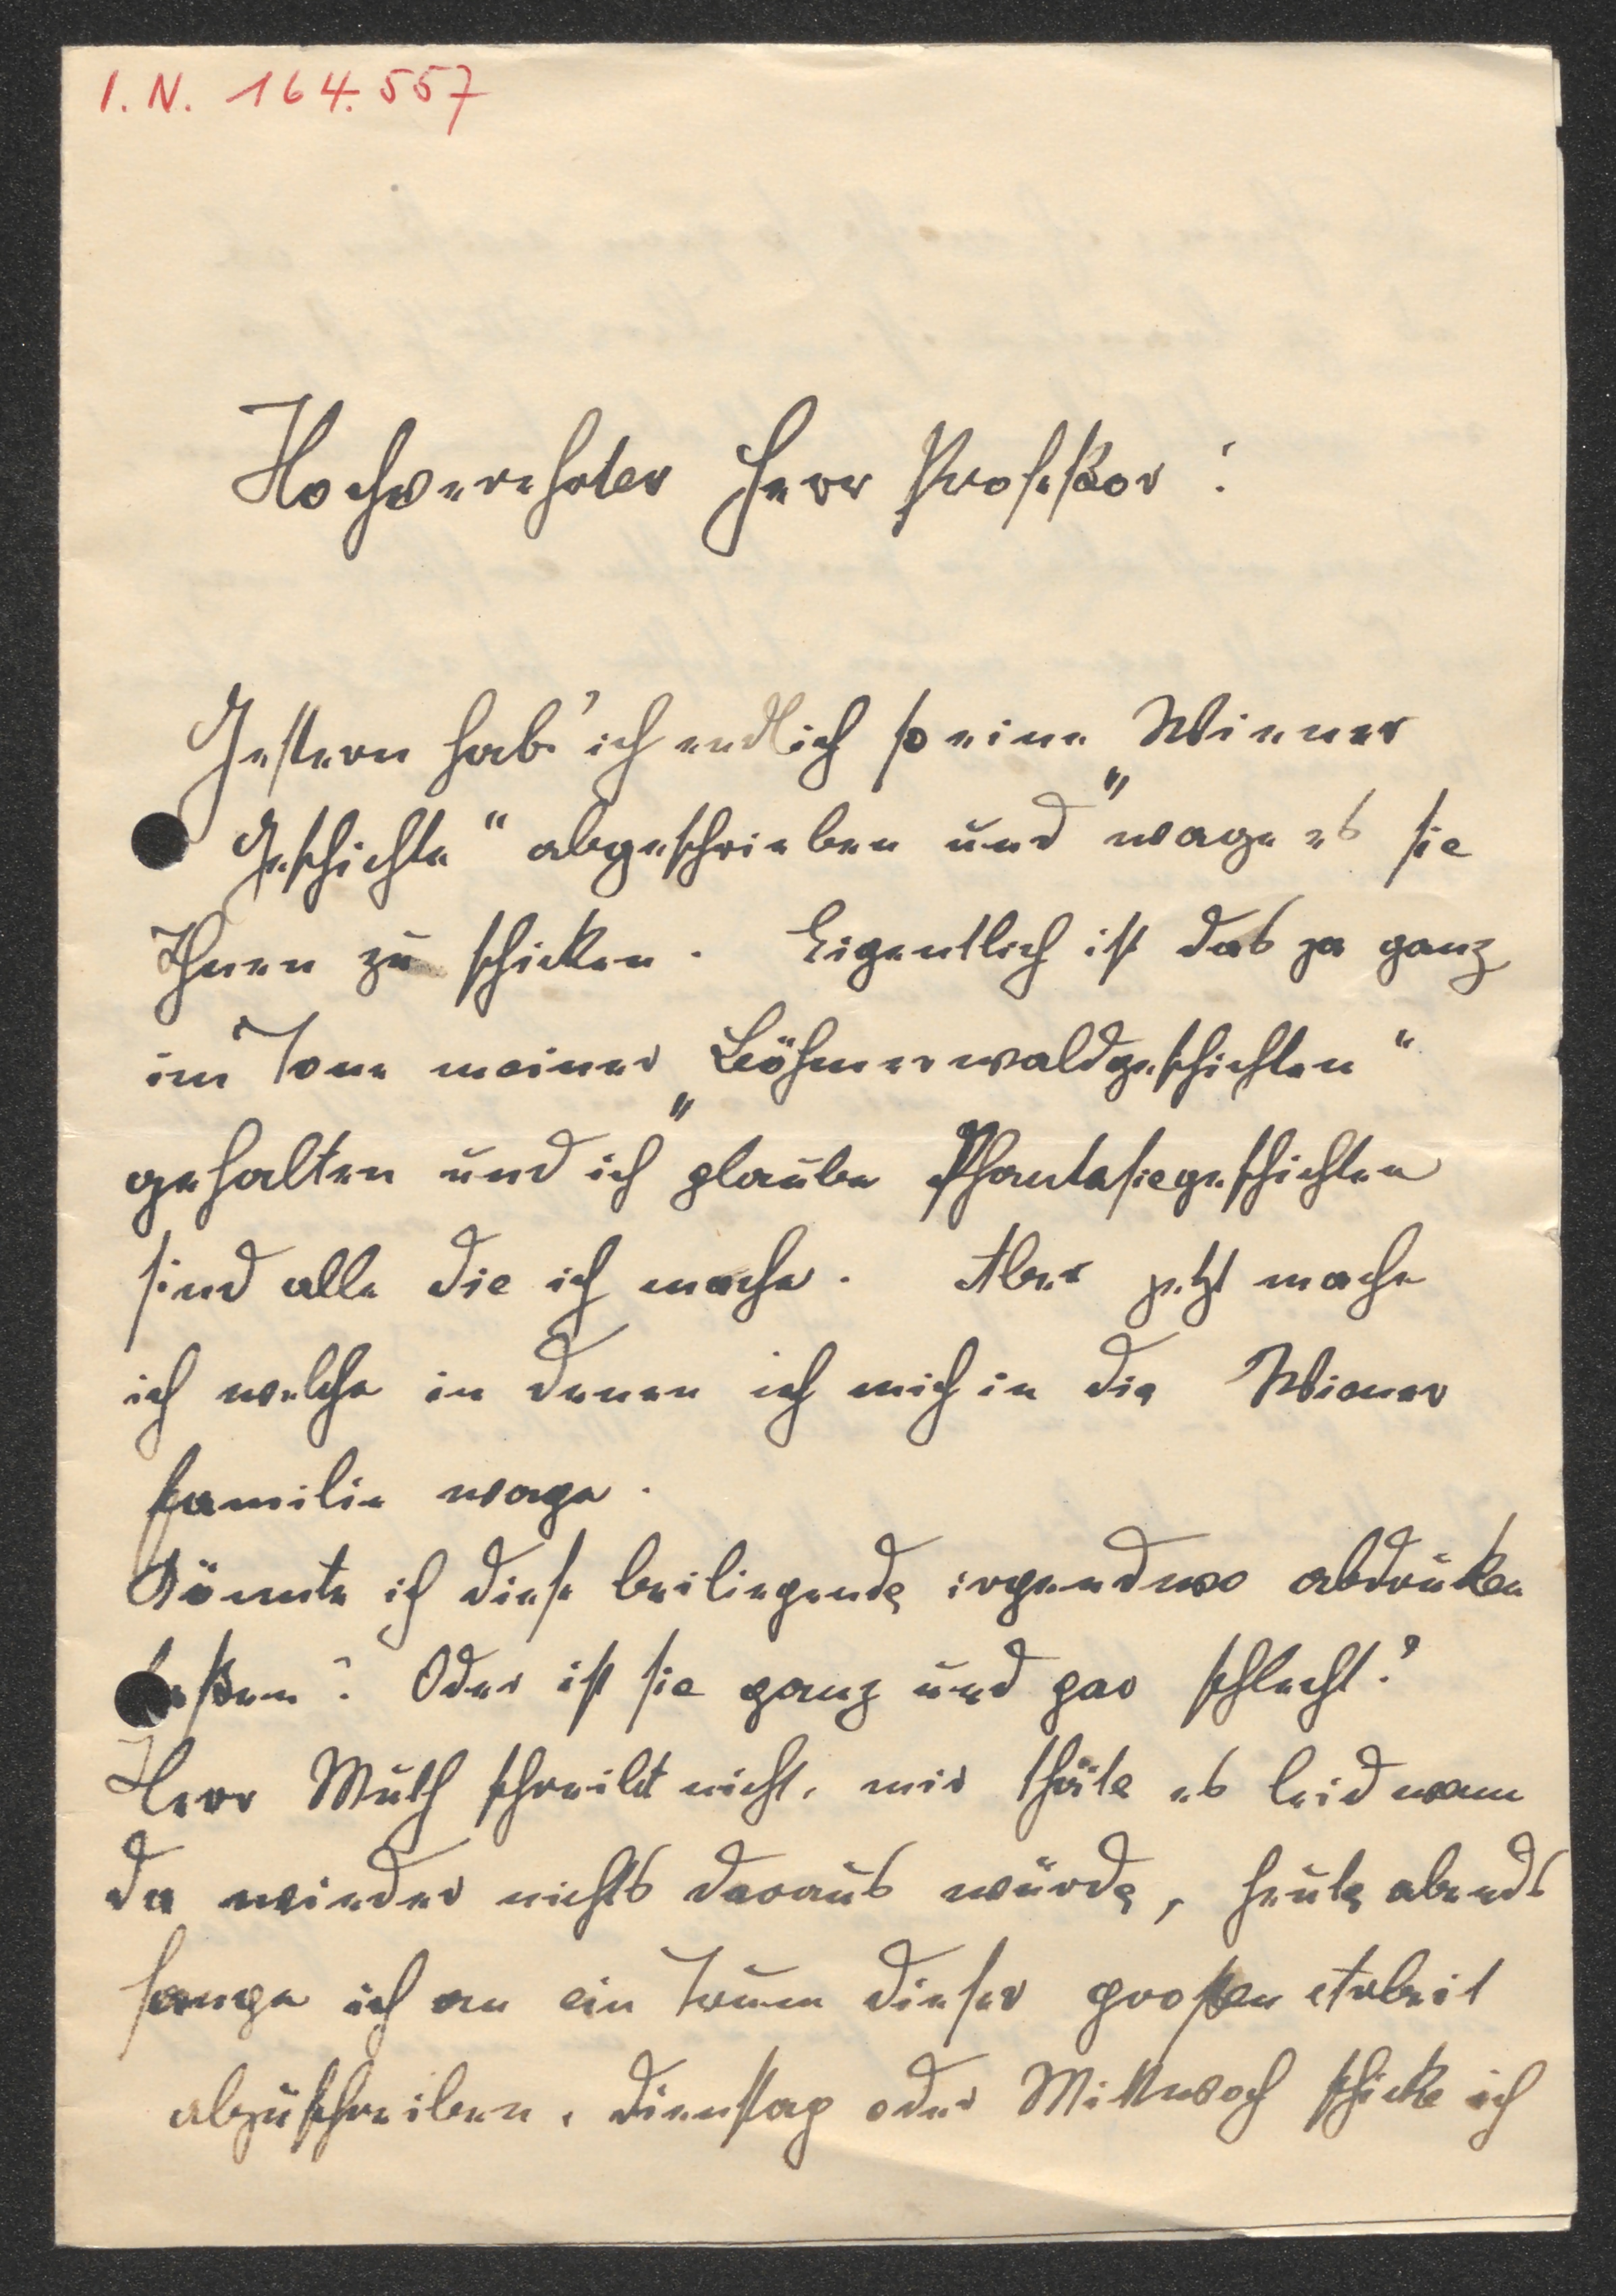 I. N. 164.557
Hochverehrter Herr Profeßor!
Gestern hab' ich endlich so eine „Wiener
Geschichte“ abgeschrieben und wage es sie
Ihnen zu schicken. Eigentlich ist das ja ganz
im Tone meiner „Böhmerwaldgeschichten“
gehalten und ich glaube Phantasiegeschichten
sind alle die ich mache. Aber jetzt mache
ich welche in denen ich mich in die Wiener
familie wage.
Könnte ich diese beiliegende irgendwo abdrucken
laßen? Oder ist sie ganz und gar schlecht?
Herr Muth schreibt nicht, mir thäte es leid wenn
da wieder nichts daraus würde, heute abends
fange ich an ein Trum dieser großen Arbeit
abzuschreiben, Dienstag oder Mittwoch schicke ich